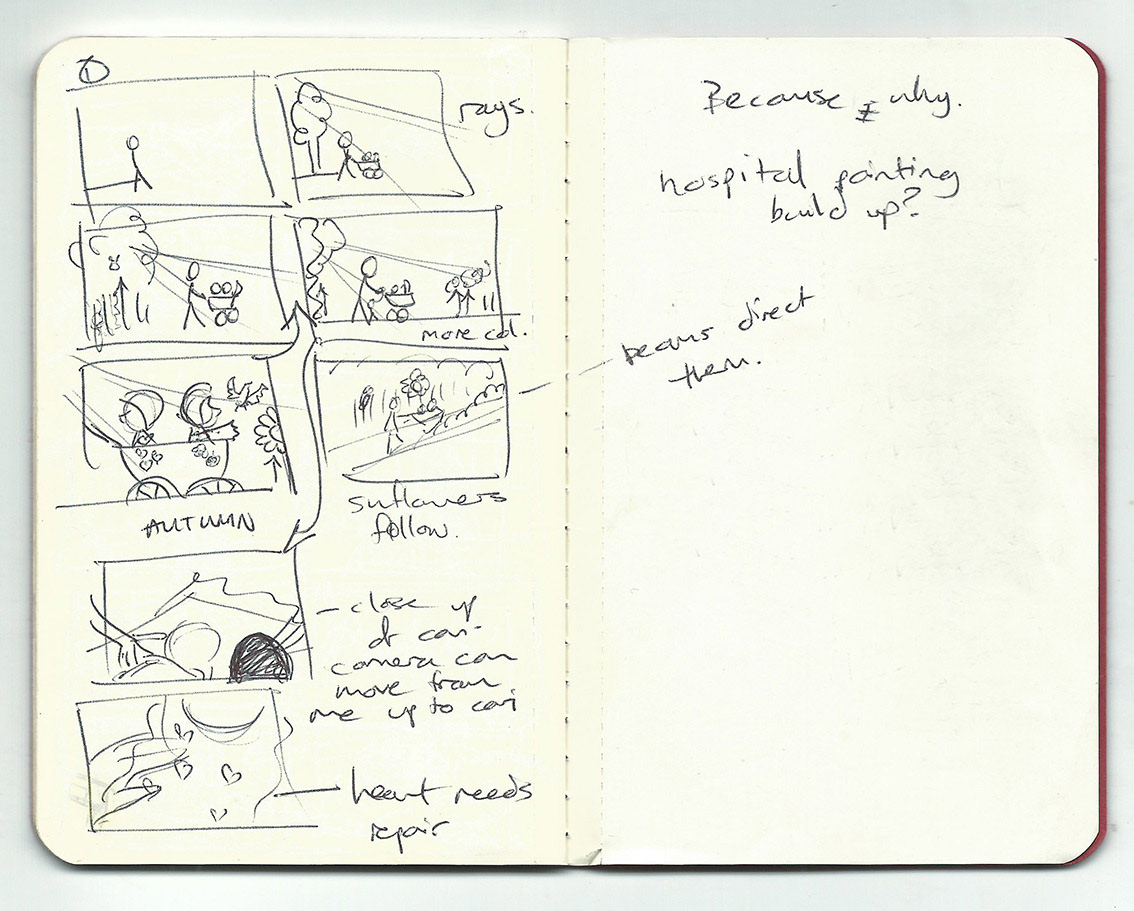 ①
rays.
more col.
AUTUMN
sunflowers
follow.
close up
of cari-
camera can
move from
me up to cari
heart needs
repair
Because I why.
hospital painting
build up?
beams direct
them.